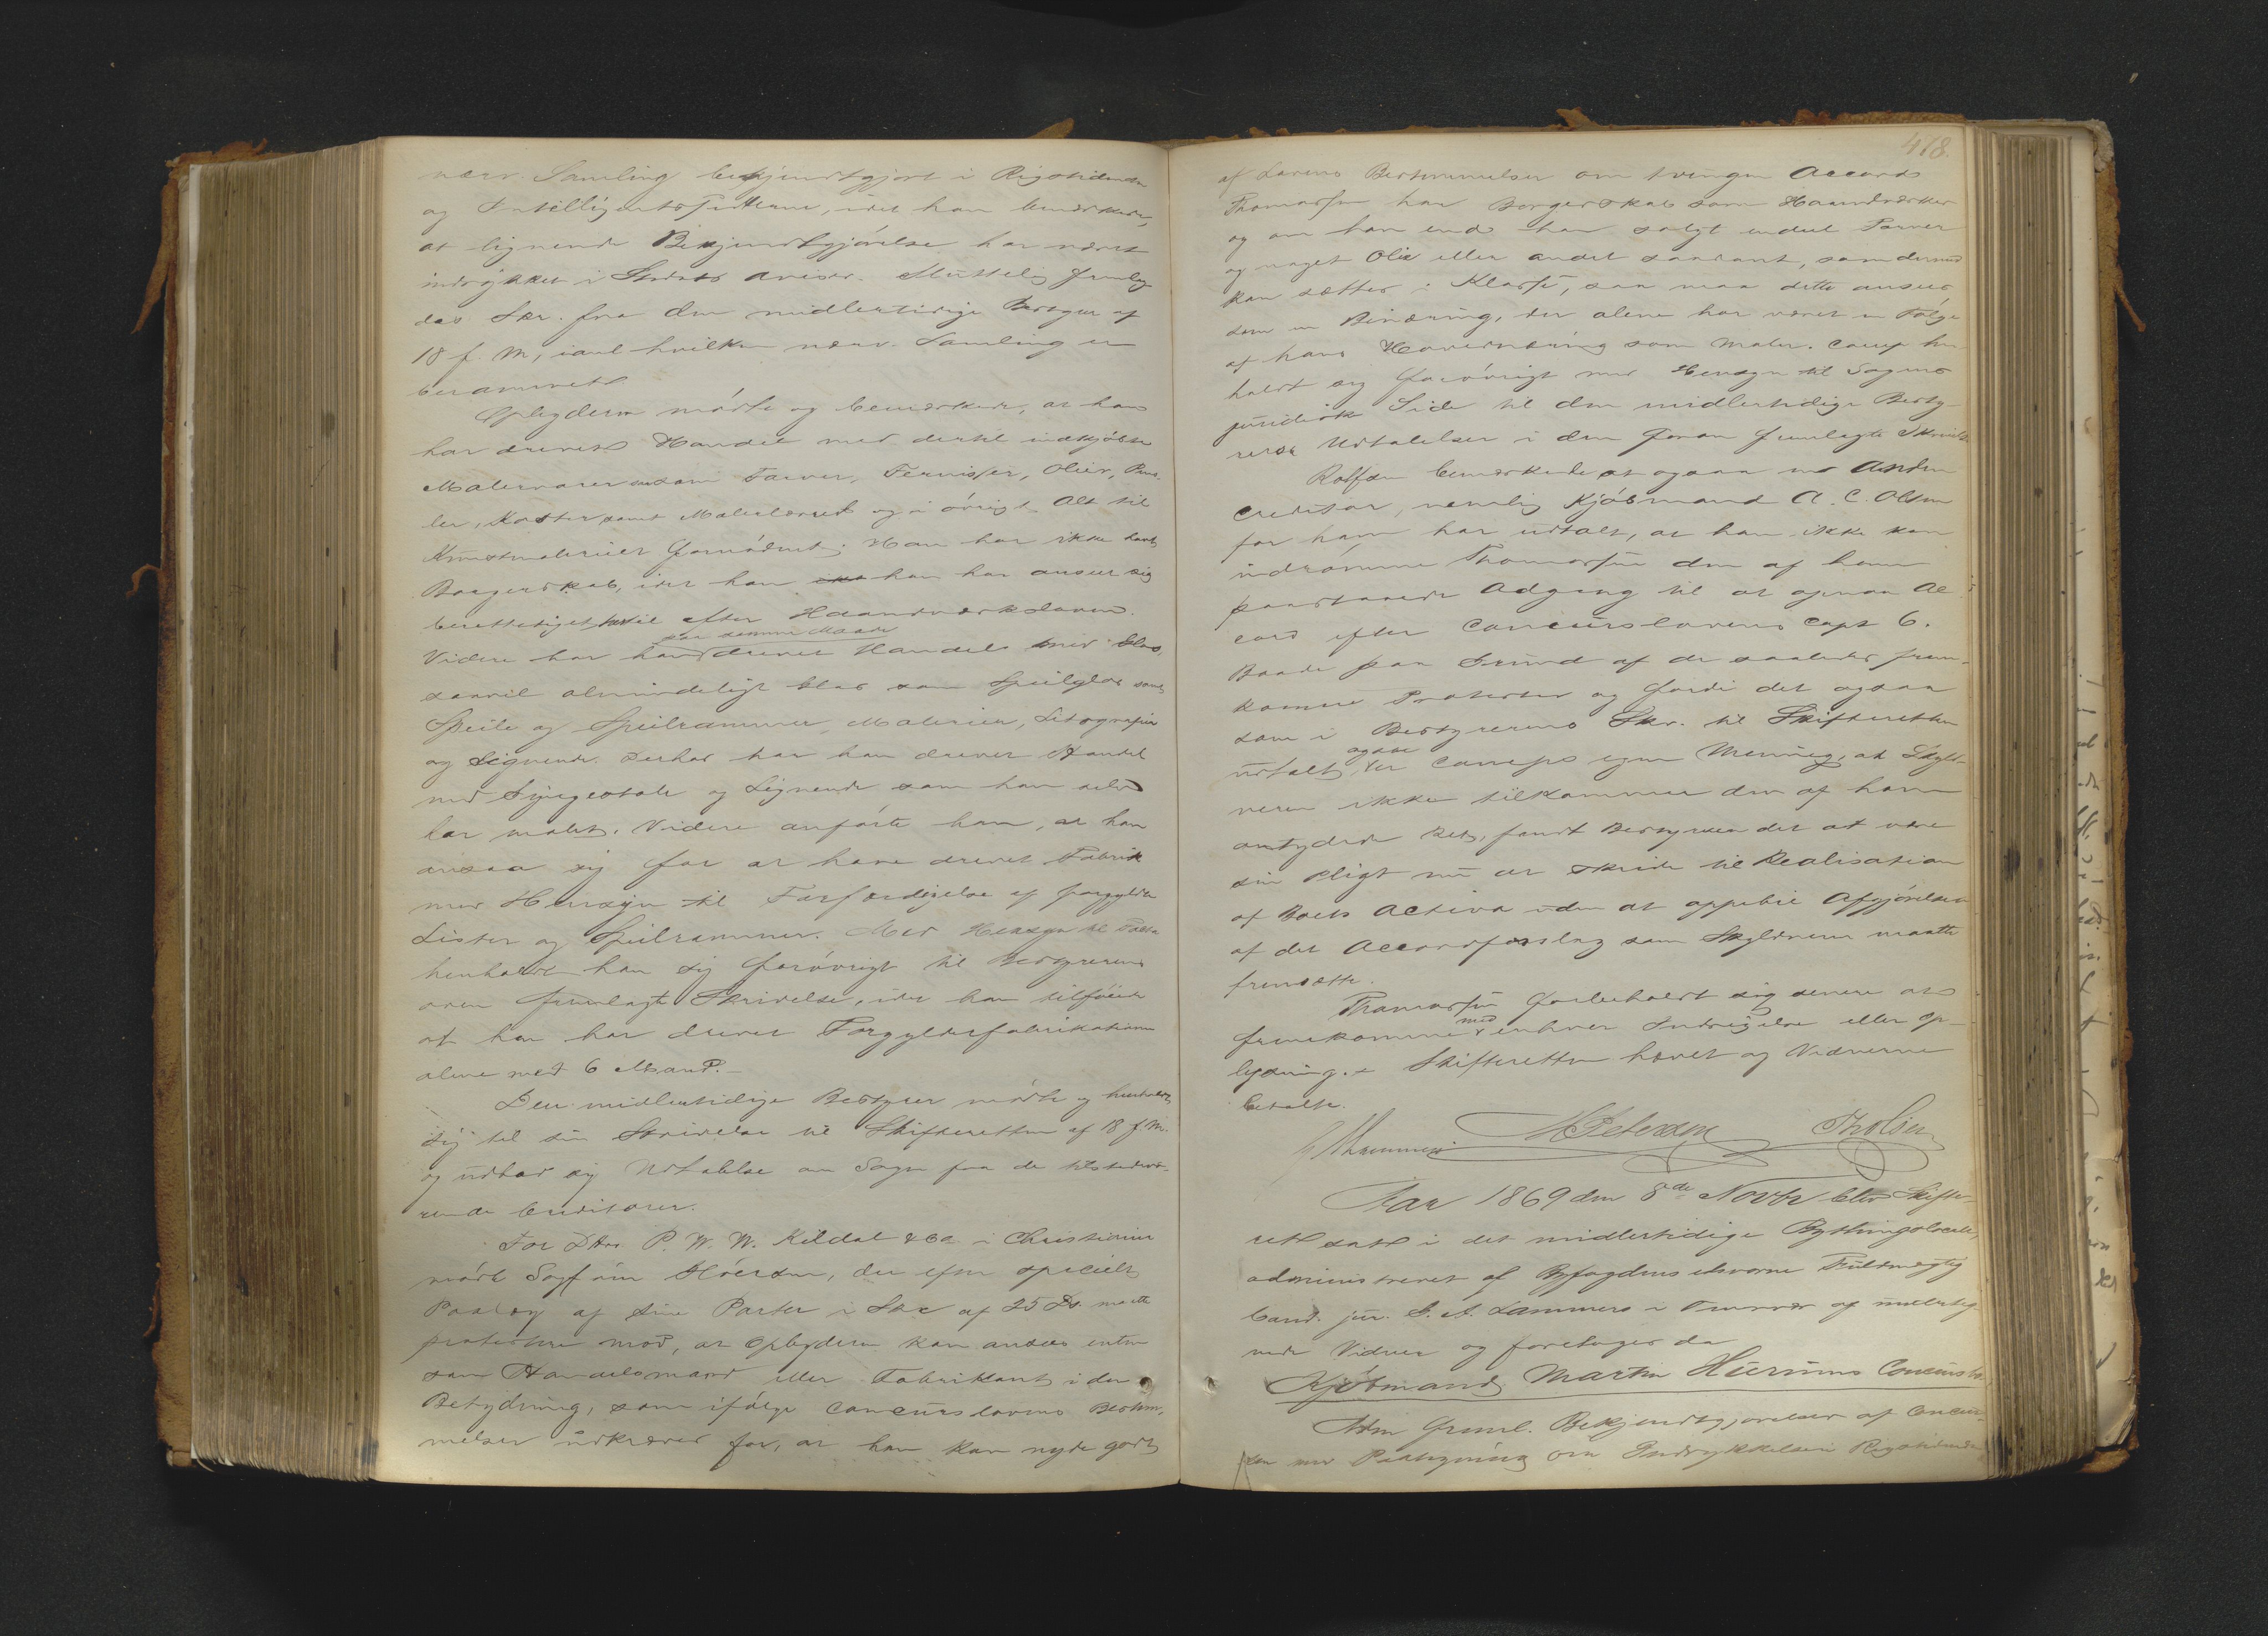 nærv. Samling bekjendtgjort i Rigstidende
og Intelligentssedlerne, idet han bemærkede,
at lignende Bekjendtgjørelse har været
indrykket i Stedets Aviser. Skifteretten fremlag
des Skr. fra den midlertidige Bestyrer af
18 f. M., ianl hvilken nærv. Samling er
berammet.
Opbyderen mødte og bemærkede, at han
har drevet Handel med dertil indkjøbte
Malervarer saasom Farver, Fernisser, Olier, Pens-
ler, Koster samt Malerlærred og i øvrigt Alt til
Kunstmalerier fornødent; Han har ikke havt
Borgerskab, idet han har anseet sig
berettiget hertil efter Haandværksloven.
Videre har han paa samme Maade drevet Handel med Glas,
saavel almindeligt Glas som Speilglas samt
Speile og Speilrammer, Malerier, Litografier
og Lignende. Desuden har han drevet Handel
med Syngestole og Lignende som han selv
har malet. Videre anførte han, at han
ansaa sig for at have drevet Fabrik
med Hensyn til Forfærdigelse af forgyldte
Lister og Speilrammer. Med Hensyn til Fakta
henholdt han sig forøvrigt til Bestyrerens
oven fremlagte Skrivelse, idet han tilføiede
at han har drevet Forgylderfabrikationen
alene med 6 Mand.
Den midlertidige Bestyrer mødte og henholdt
sig til sin Skrivelse til Skifteretten af 18 f. M.
og udbad sig Udtalelse om Sagen fra de tilstedevæ-
rende Creditorer.
For DHrr. P. W. W. Kildal & Co i Christiania
mødte Sagfører Höerson, der efter specielt
Paalæg af sine Parter i Skr af 25 ds. maatte
protestere mod, at Opbyderen kan ansees enten
som Handelsmand eller Fabrikant i den
Betydning, som ifølge Concurslovens Bestem-
melser udkræves for, at han kan nyde godt
478.
af Lovens Bestemmelser om tvungen Accord
Thomassen har Borgerskab som Haandværker
og om han end har solgt endeel Farver
og noget Olie eller andet saadant, som dermed
kan sættes i Klasse, saa maa dette ansees
som en Binæring, der alene har været en Følge
af hans Hovednæring som Maler. Comp hen-
holdt sig forøvrigt med Hensyn til Sagens
juridiske Side til den midlertidige Besty-
rers Udtalelser i den foran fremlagte Skrivelse
Rolfsen bemærkede at ogsaa en Anden
Creditor, nemlig Kjøbmand A. C. Olsen
for ham har udtalt, at han ikke kan
indrømme Thomassen den af ham
paastaaede Adgang til at opnaa Ac-
cord efter Concurslovens Capt 6.
Baade paa Grund af de saaledes frem-
komne Protester og fordi det ogsaa
som i Bestyrerens Skr. til Skifteretten
udtalt, er ogsaa Comps egen Mening, at Skyld-
neren ikke tilkommer den af ham
antydede Ret, fandt Bestyreren det at være
sin Pligt nu at skride til Realisation
af Boets Activa uden at oppebie Afgjørelsen
af det Accordforslag som Skyldneren maatte
fremsætte.
Thomassen forbeholdt sig senere at
fremkomme med enhver Indsigelse eller Op-
lysning. – Skifteretten hævet og Vidnerne
betalte.
Lammers MPetersen Tholsen
Aar 1869 den 8de Novbr blev Skifte-
ret sat i det midlertidige Bythingslocale,
administreret af Byfogdens edsvorne Fuldmægtig
Cand. jur. G. A. Lammers i Overvær af underteg
nede Vidner og foretages da
Kjøbmand Martin Hürums Concursbo.
Adm freml. Bekjendtgjørelser af Concur-
sen med Paategning om Indrykkelse i Rigstidende